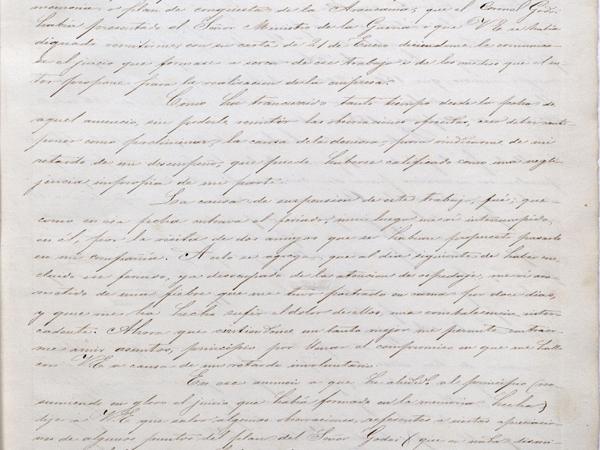 memoria, o plan de conquista de la Araucania, que el Coronel Godoi
habia presentado al Señor Ministro de la Guerra i que V.E. se habia
dignado remitirme con su carta de 21 de Enero
el juicio que formase a cerca de ese trabajo i de los medios que el au-
tor propone para la realizacion de la empresa.
Como ha trascurrido tanto tiempo desde la fecha de
aquel anuncio, sin poderle remitir las observaciones ofrecidas, creo deber ante-
poner como preliminar, la causa de la demora, para vindicarme de un
retardo de mi desempeño, que puede haberse calificado como una negli-
jencia impropia de mi parte.
La causa de suspension de este trabajo, fué; que
como en esa fecha entrava el feriado, mui luego me vi interrumpido,
en él, por la visita de dos amigos que se habian propuesto pasarlo
en mi compañia. A esto se agrega, que al dia siguiente de haber
ya desocupado de la atencion del ospedaje, me vi
de una fiebre que me tuvo postrado en cama por doce dias,
y que me ha hecho sufrir el dolor de ellos, i una combalecencia
Ahora que un tanto mejor me permite contraer-
me a mis asuntos, principio por llenar el compromiso en que me hallo
con V.E. a causa de un retardo involuntario.
En ese anuncio a que he aludido al principio re-
sumiendo en globo el juicio que habia formado en la memoria
dije a V.E. que salvo algunas observaciones, referentes a ciertas apreciacio-
nes de algunos puntos del plan del Señor Godoi (que